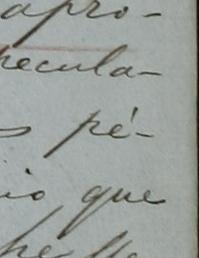 apro-
pecula-
s pé-
io que